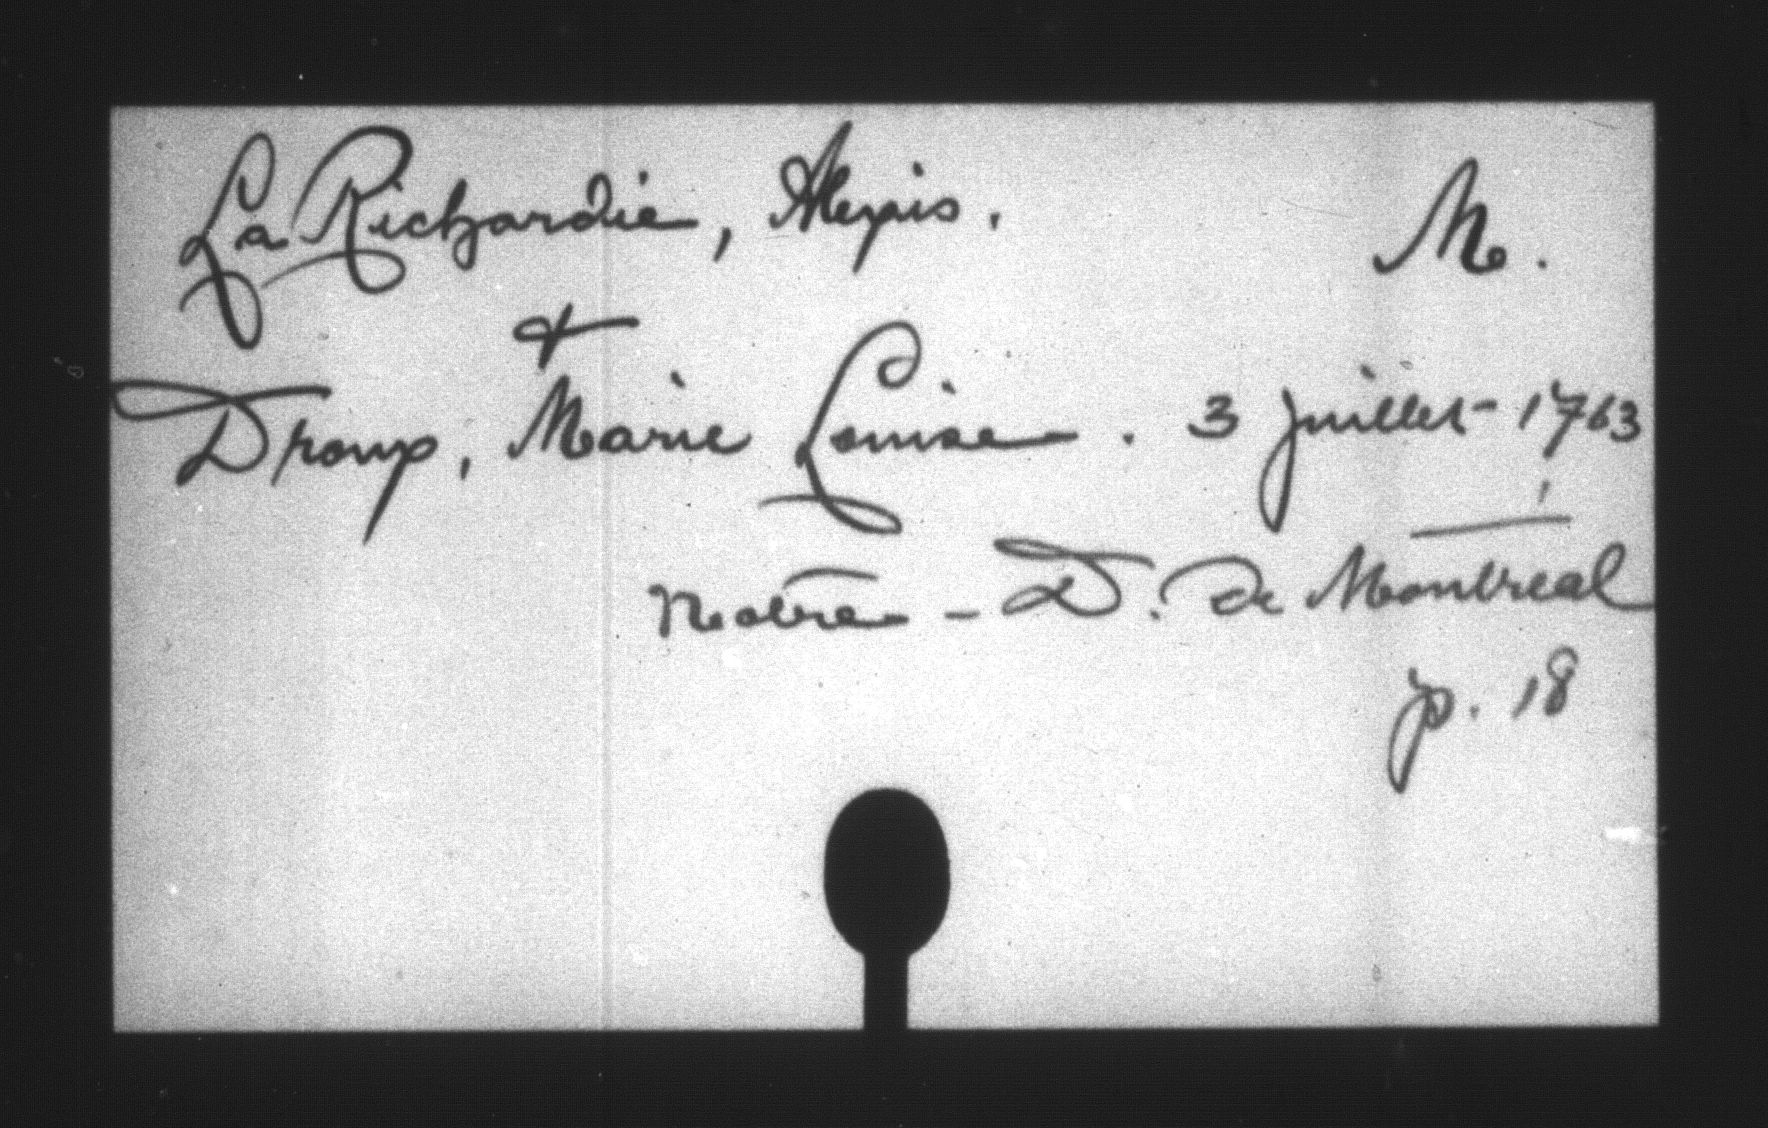 La Richardie, Alexis. M.
&
Droux, Marie Louise. 3 Juillet - 1763
Notre - D. de Montreal
p. 18